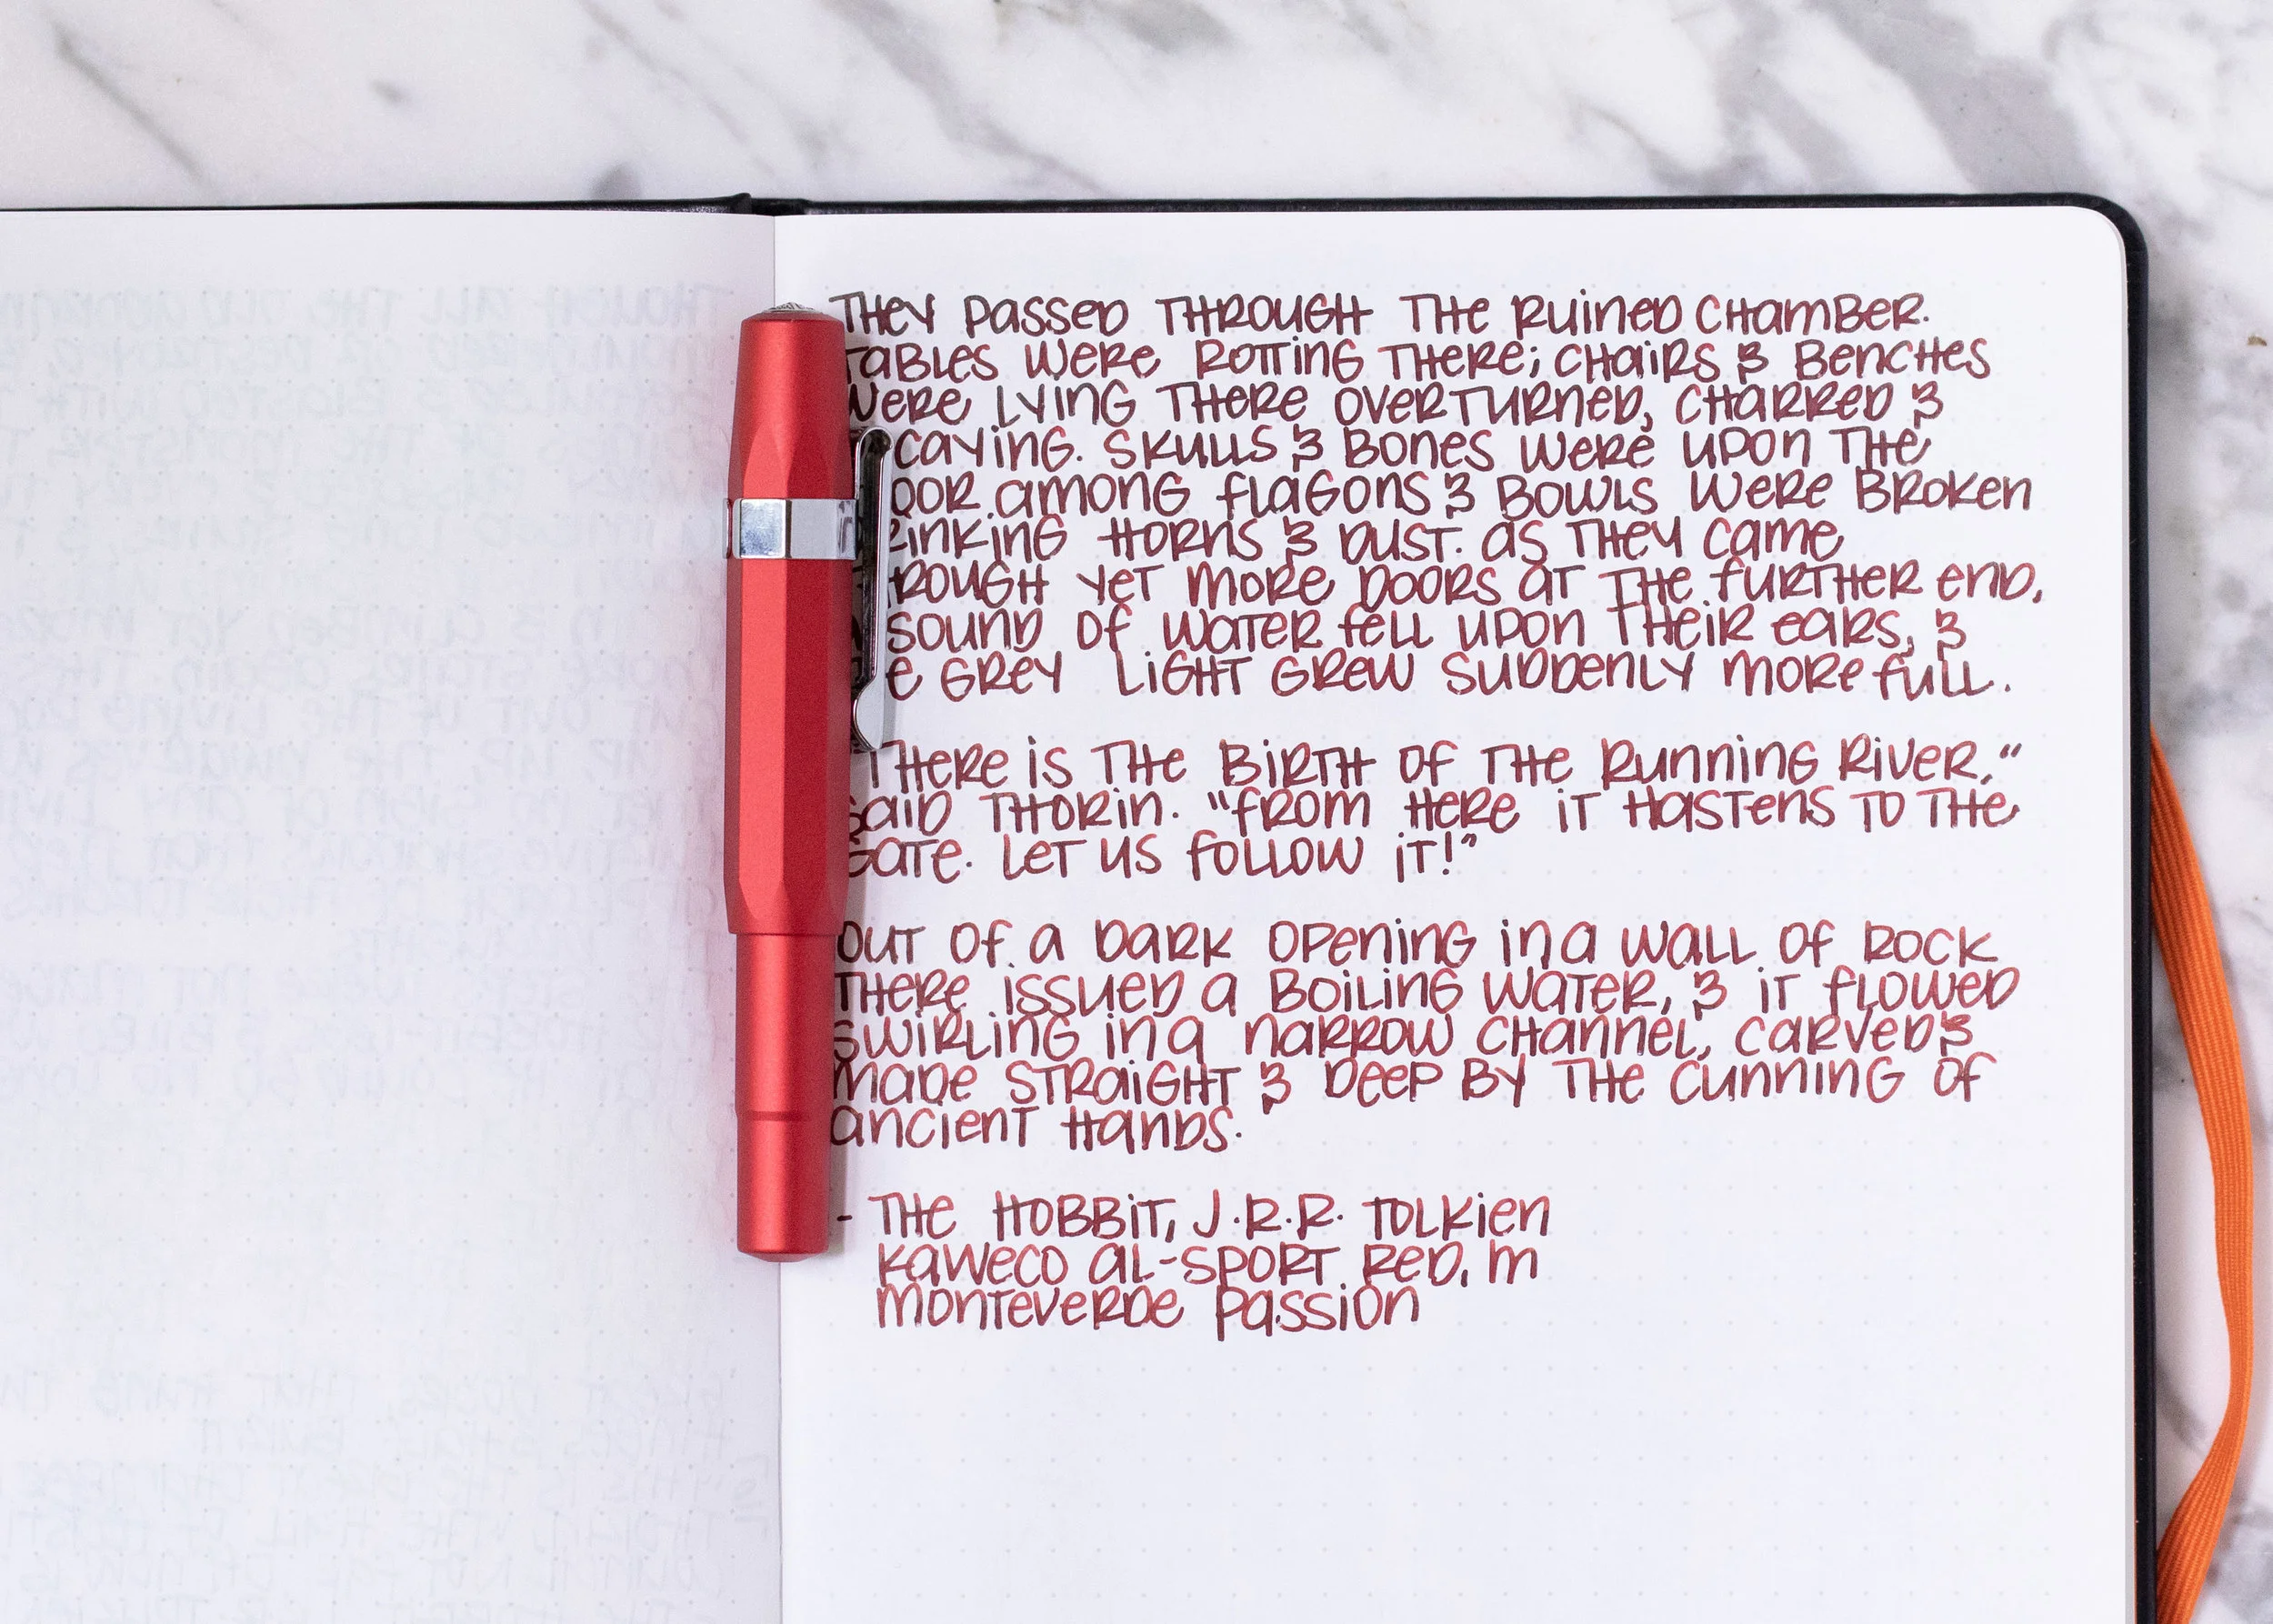 THEY PASSED THROUGH THE RUINED CHAMBER.
TABLES WERE ROTTING THERE; CHAIRS & BENCHES
WERE LYING THERE OVERTURNED, CHARRED &
CAYING. SKULLS & BONES WERE UPON THE
OOR AMONG FLAGONS & BOWLS WERE BROKEN
INKING HORNS & DUST. AS THEY CAME
ROUGH YET MORE DOORS AT THE FURTHER END,
A SOUND OF WATER FELL UPON THEIR EARS, &
E GREY LIGHT GREW SUDDENLY MORE FULL.
THERE IS THE BIRTH OF THE RUNNING RIVER,"
SAID THORIN. "FROM HERE IT HASTENS TO THE
GATE. LET US FOLLOW IT!"
OUT OF A DARK OPENING IN A WALL OF ROCK
THERE ISSUED A BOILING WATER, & IT FLOWED
SWIRLING IN A NARROW CHANNEL, CARVED &
MADE STRAIGHT & DEEP BY THE CUNNING OF
ANCIENT HANDS.
- THE HOBBIT, J.R.R. TOLKIEN
KAWECO AL-SPORT RED, M
MONTEVERDE PASSION